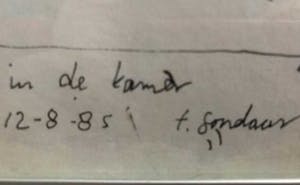 in de kamer
12-8-85 t. Sondaar